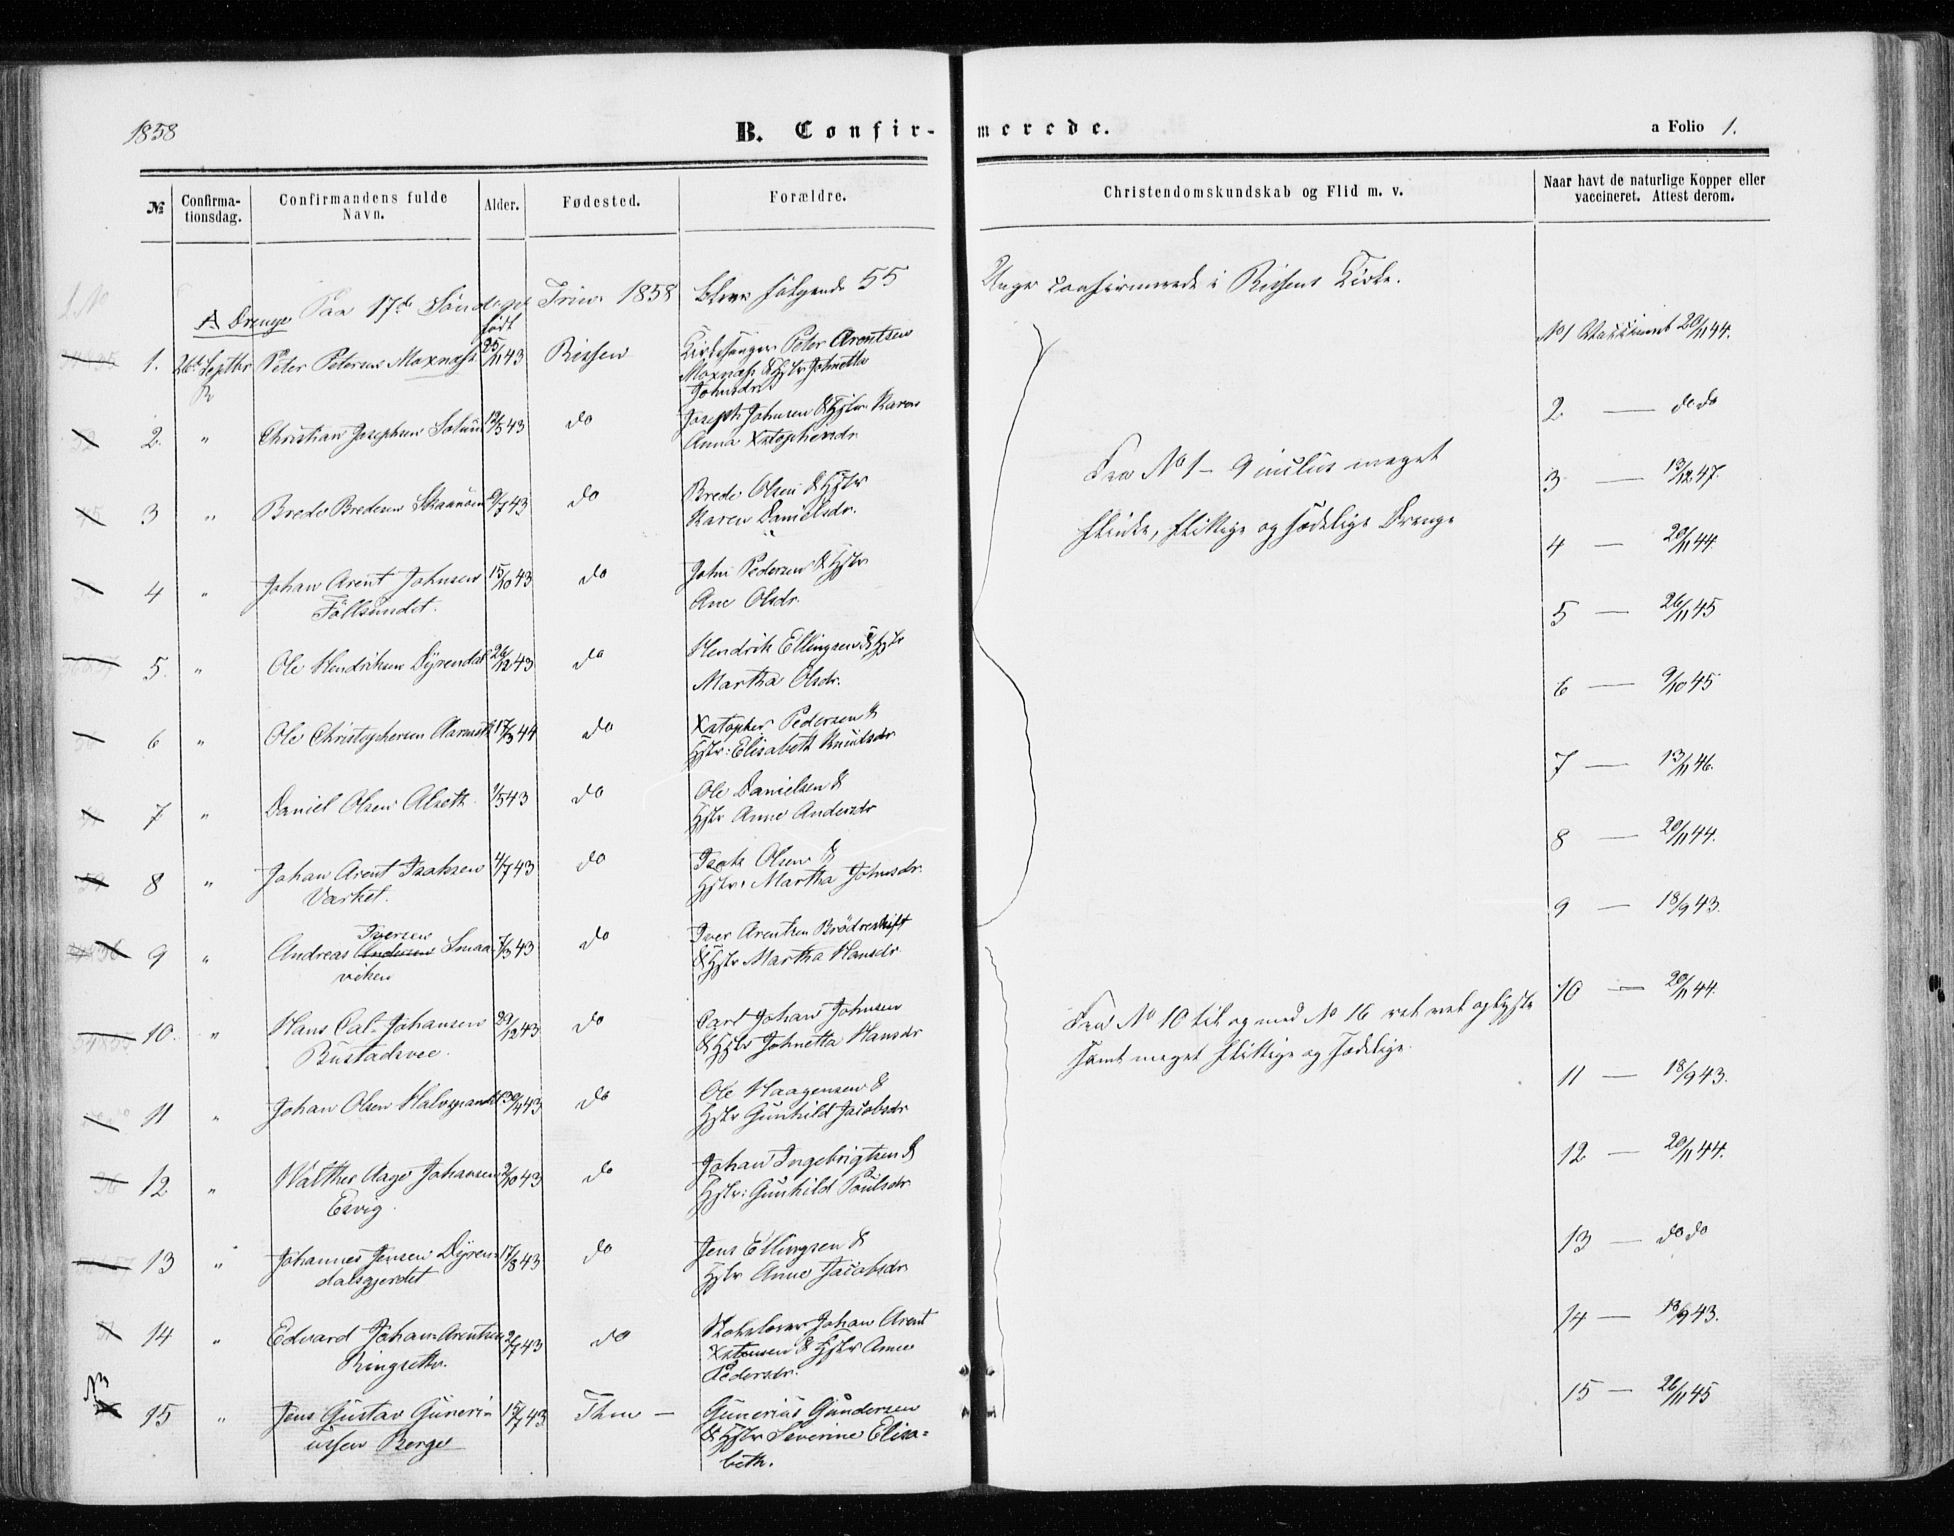 1858
B. Confir-
merede.
a Folio 1.
№
Confirma-
tionsdag.
Confirmandens fulde
Navn.
Alder.
Fødested.
Forældre.
Christendomskundskab og Flid m. v.
Naar havt de naturlige Kopper eller
vaccineret. Attest derom.
Paa 17de Søndag Trin: 1858 bleve følgende 55
Unge confirmerede i Rissens Kirke.
A Drenge
født
1. 26de Septbr Peter Petersen Moxnæss 25/11 43 Rissen Kirkesanger Peter Arentsen
Moxnæss & Hstr Johnetta
Johnsdr
2. " Christian Josephsen 12/5 43 do Joseph Johnsen & Hstr Karen
Anna Xstophersdr
3 " Brede Bredesen 9/7 43 do Brede Olsen & Hstr
Karen Danielsdr.
4 " Johan Arent Johnsen 15/10 43 do John Pedersen & Hstr
Föllsundet. Ane Olsdr.
5. " Ole Hendriksen Dyrendal 26/12 43 do Hendrik Ellingsen & Hstr
Martha Olsdr.
6 " Ole Christophersen 17/3 44 do Xstopher Pedersen &
Hstr: Elisabeth Knudsdr
7 " Daniel Olsen Alseth 1/5 43 do Ole Danielsen &
Hstr Anne Andersdr
8 " Johan Arent Isaksen 4/7 43 do Isak Olsen &
Varket. Hstr: Martha Johnsdr.
9 " Andreas Iversen Smaa- 7/3 43 do Iver Arentsen Brödreskift
viken & Hstr Martha Hansdr
10. " Hans Carl Johansen 29/12 43 do Carl Johan Johnsen
Bustadsvee. & Hstr Johnetta Hansdr
11 " Johan Olsen 30/4 43 do Ole Haagensen &
Hstr Gunhild Jacobsdr
12 " Walther Aage Johansen 2/10 43 do Johan Ingebrigtsen &
Esvig. Hstr: Gunhild Poulsdr
13 " Johannes Jensen Dyren- 17/8 43 do Jens Ellingsen &
dalsgjerdet Hstr Anne Jacobsdr
14 " Edvard Johan Arentsen 2/7 43 do Johan Arent
Ringsether. Xstensen & Hstr Anne
Pedersdr.
15 " Jens Gustav Guneri- 15/7 43 Thm — Gunerius Gundersen
ussen Berge & Hstr Severine Elisa-
beth.
Fra No 1 - 9 inclus meget
flinke, flittige og sædelige Drenge
Fra No 10 til og med No 16 ret vel oplyste
samt meget flittige og sædelige.
No 1 Vaccineret 20/11 44.
2 — do do
3 — 13/12 47.
4 — 20/11 44.
5 — 26/11 45
6 — 9/10 45
7 — 13/11 46.
8 — 20/11 44.
9 — 18/9 43.
10 — 20/11 44.
11 — 18/9 43.
12 — 20/11 44.
13 — do do
14 — 18/9 43.
15 — 26/11 45